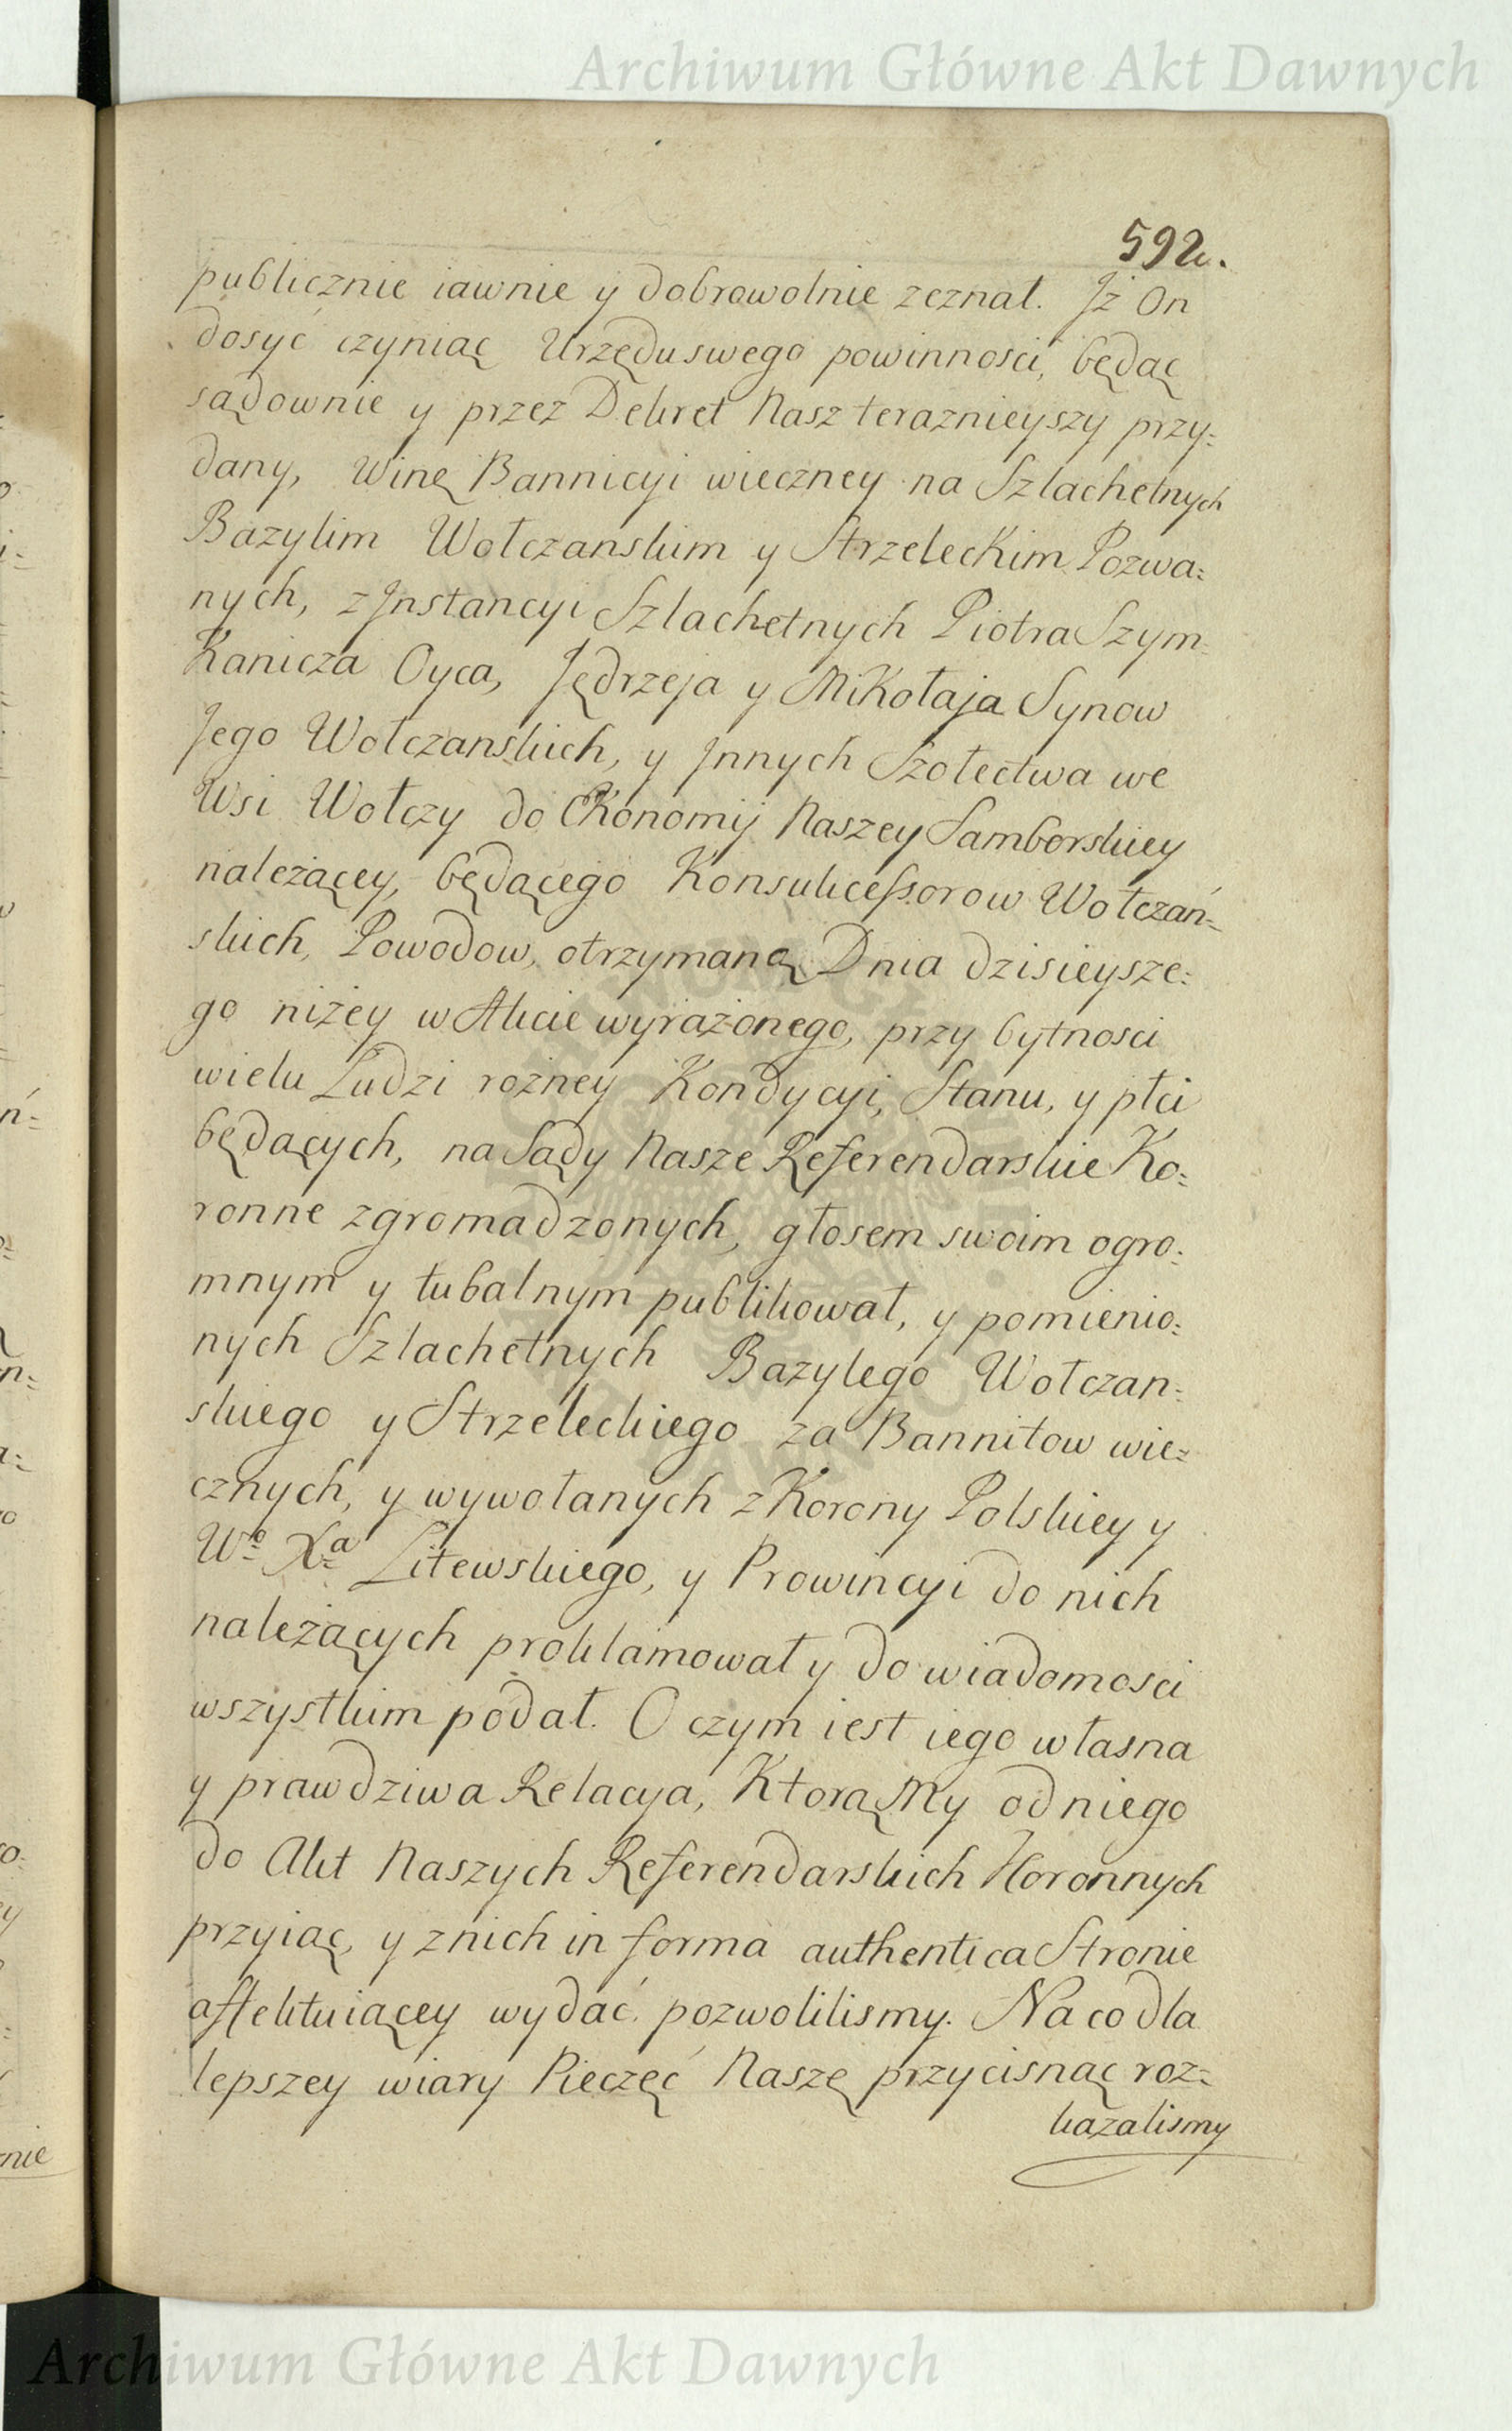 Archiwum Główne Akt Dawnych
592.
publicznie iawnie y dobrowolnie zeznał. Jż On
dosyć czyniąc Urzędu swego powinności, będąc
sądownie y przez Dekret Nasz teraznieyszy przy:
dany, Winę Bannicyi wieczney na Szlachetnych
Bazylim Wołczanskim y Strzeleckim Pozwa:
nych, z Jnstancyi Szlachetnych Piotra Szym:
Kanicza Oyca, Jędrzeja y Mikołaja Synow
Jego Wołczanskich, y Jnnych Szołectwa we
Wsi Wołczy do EKonomij Naszey Samborskiey
należącey, będącego Konsukcessorow Wołczań:
skich, Powodow, otrzymaną Dnia dzisieysze:
go niżey w Akcie wyrażonego, przy bytnosci
wielu Ludzi rożney Kondycyi, Stanu, y płci
będących, na Sądy Nasze Referendarskie Ko:
ronne zgromadzonych, głosem swoim ogro:
mnym y tubalnym publikował, y pomienio:
nych Szlachetnych Bazylego Wołczan:
skiego y Strzeleckiego za Bannitow wie:
cznych, y wywołanych z Korony Polskiey y
Wo Xa Litewskiego, y Prowincyi do nich
należących proklamował y do wiadomosci
wszystkim podał. O czym iest iego własna
y prawdziwa Relacya, Ktorą My od niego
do Akt Naszych Referendarskich Koronnych
przyiąc, y z nich in forma authentica Stronie
affektuiącey wydać pozwolilismy. Na co dla
lepszey wiary Pieczęć Naszę przycisnąc roz:
kazalismy
nie
Archiwum Główne Akt Dawnych